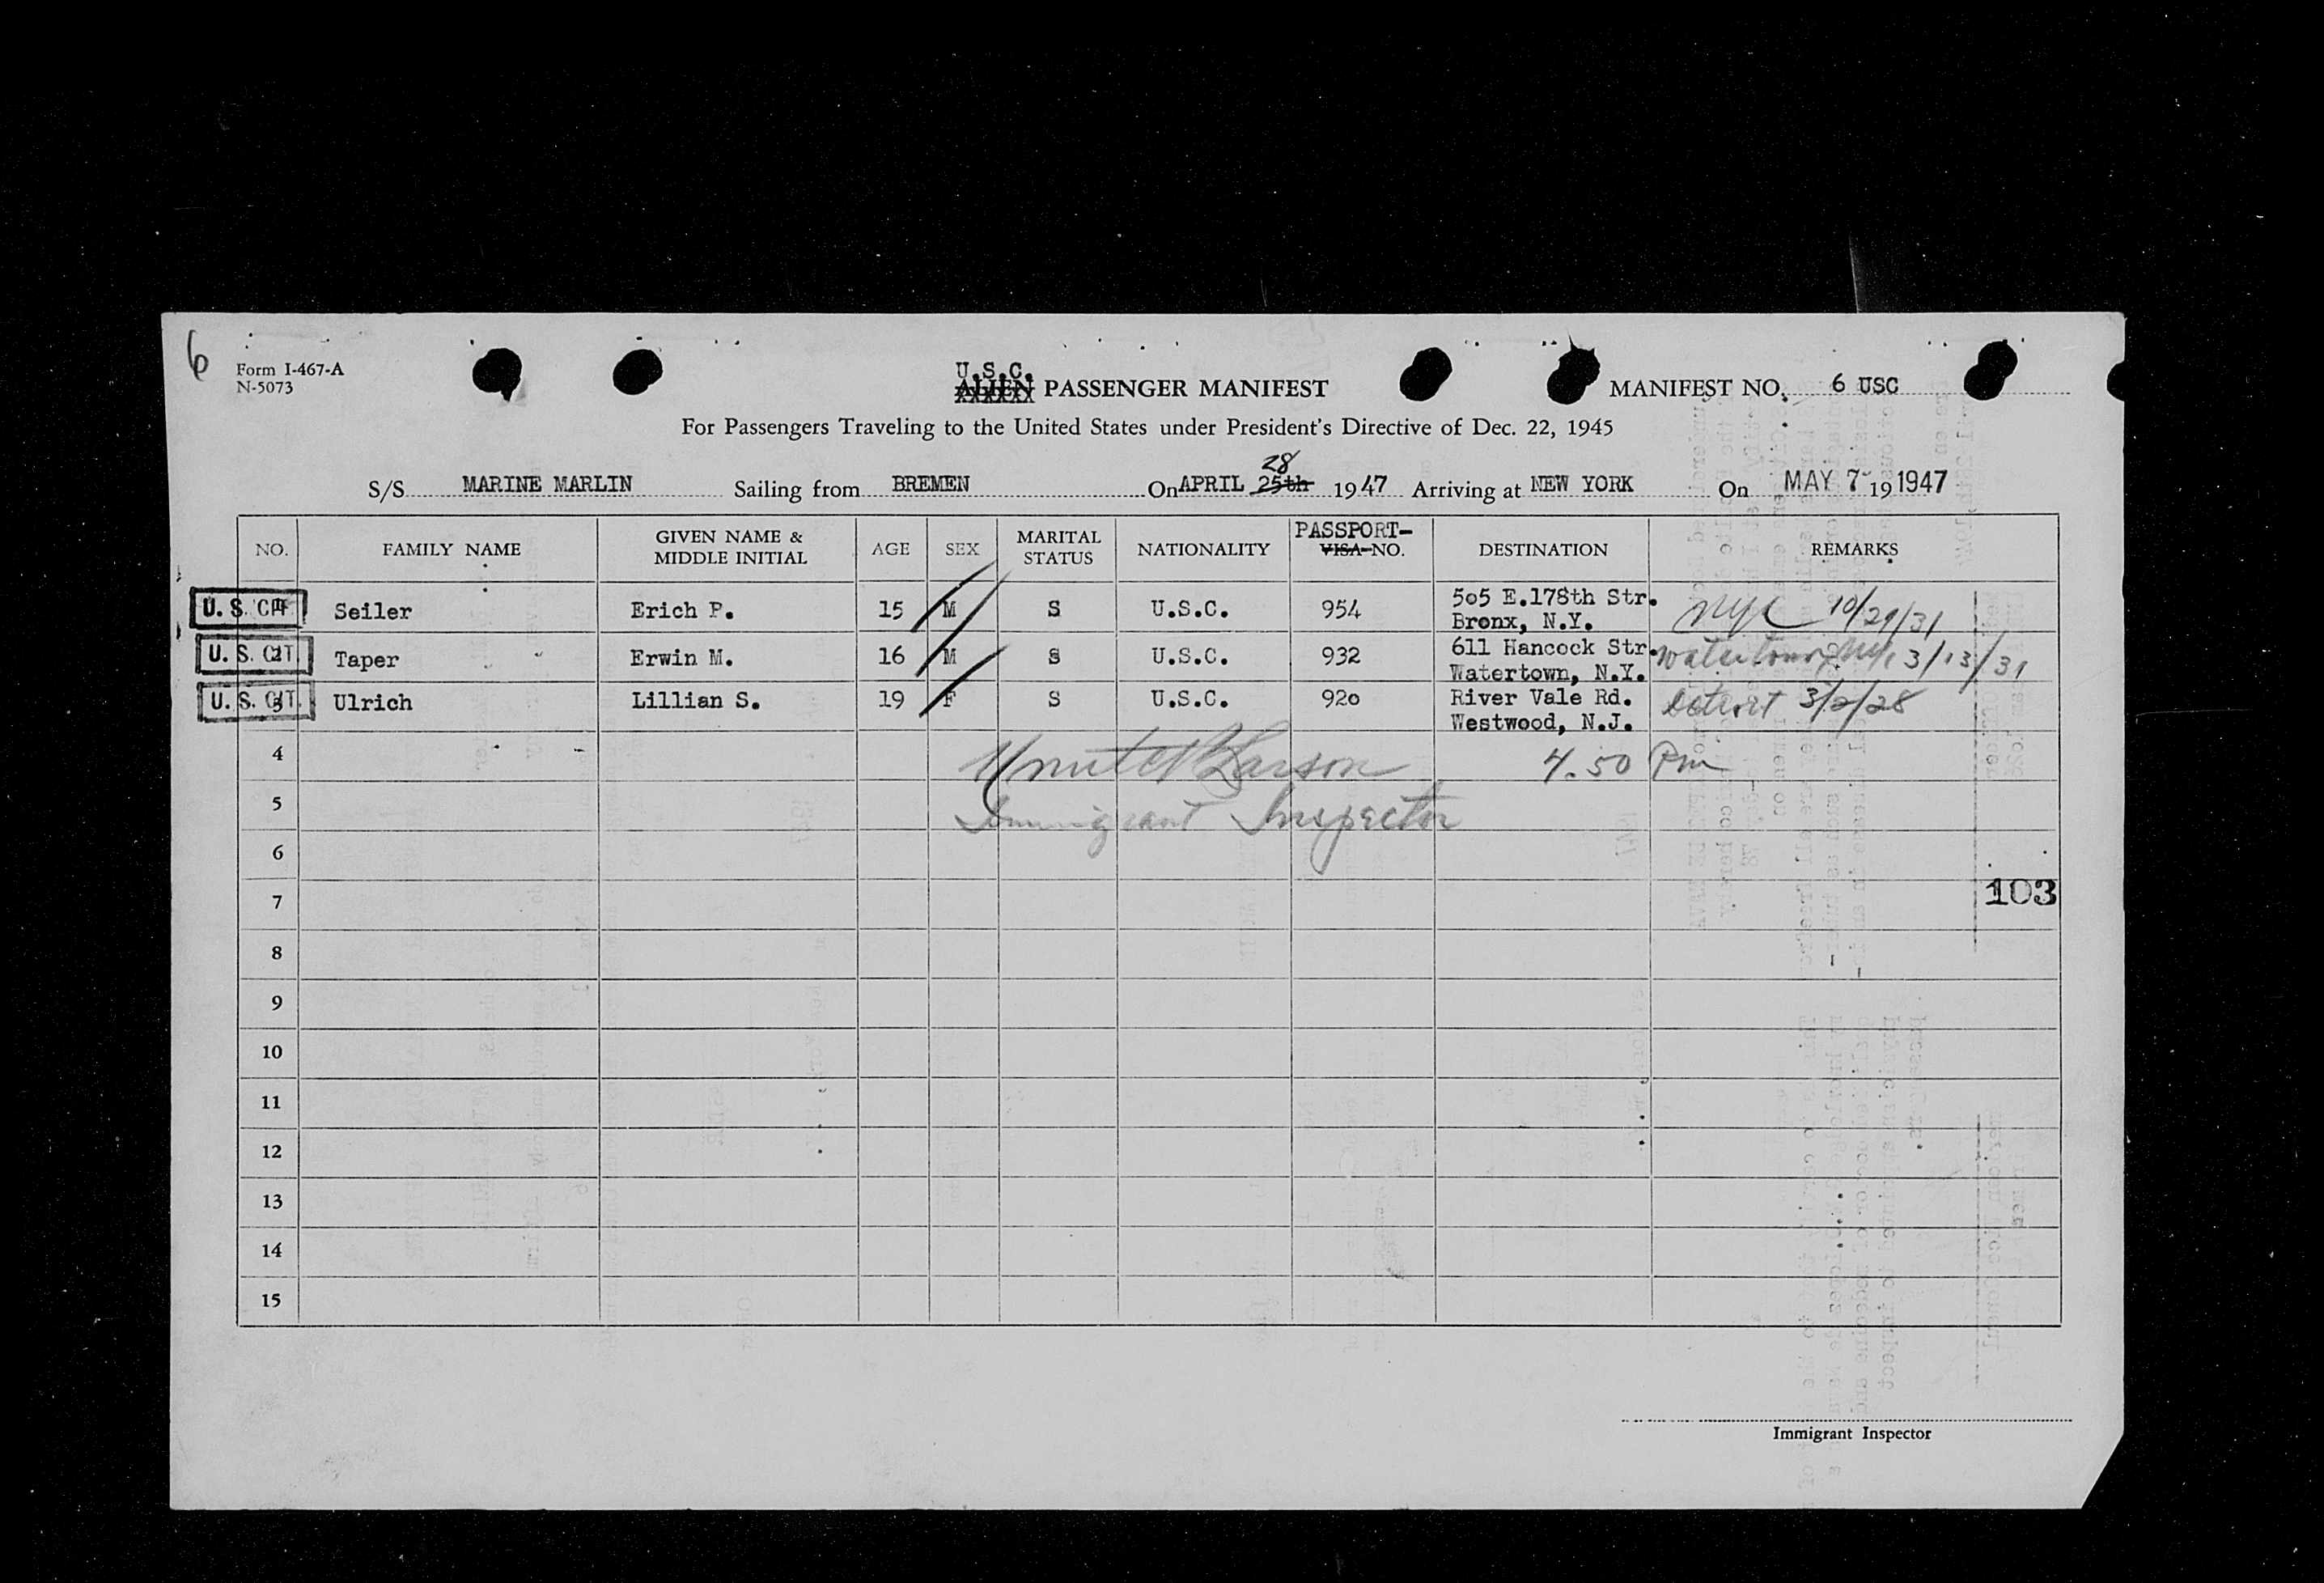 6
Form I-467-A
N-5073
U.S.C.
ALIEN PASSENGER MANIFEST
MANIFEST NO. 6 USC
For Passengers Traveling to the United States under President's Directive of Dec. 22, 1945
28
S/S MARINE MARLIN Sailing from BREMEN On APRIL 25th 1947 Arriving at NEW YORK On MAY 7 19 1947
NO. FAMILY NAME GIVEN NAME & MIDDLE INITIAL AGE SEX MARITAL STATUS NATIONALITY PASSPORT- VISA NO. DESTINATION REMARKS
U. S. CIT. Seiler Erich P. 15 M S U.S.C. 954 505 E.178th Str. Bronx, N.Y. NYC 10/29/31
U. S. CIT. 2 Taper Erwin M. 16 M S U.S.C. 932 611 Hancock Str. Watertown, N.Y. Watertown, NY, 3/13/31
U. S. CIT. 3 Ulrich Lillian S. 19 F S U.S.C. 920 River Vale Rd. Westwood, N.J. Detroit 3/2/28
4 Larson 4.50 Pm
5 Immigrant Inspector
6
7 103
8
9
10
11
12
13
14
15
Immigrant Inspector